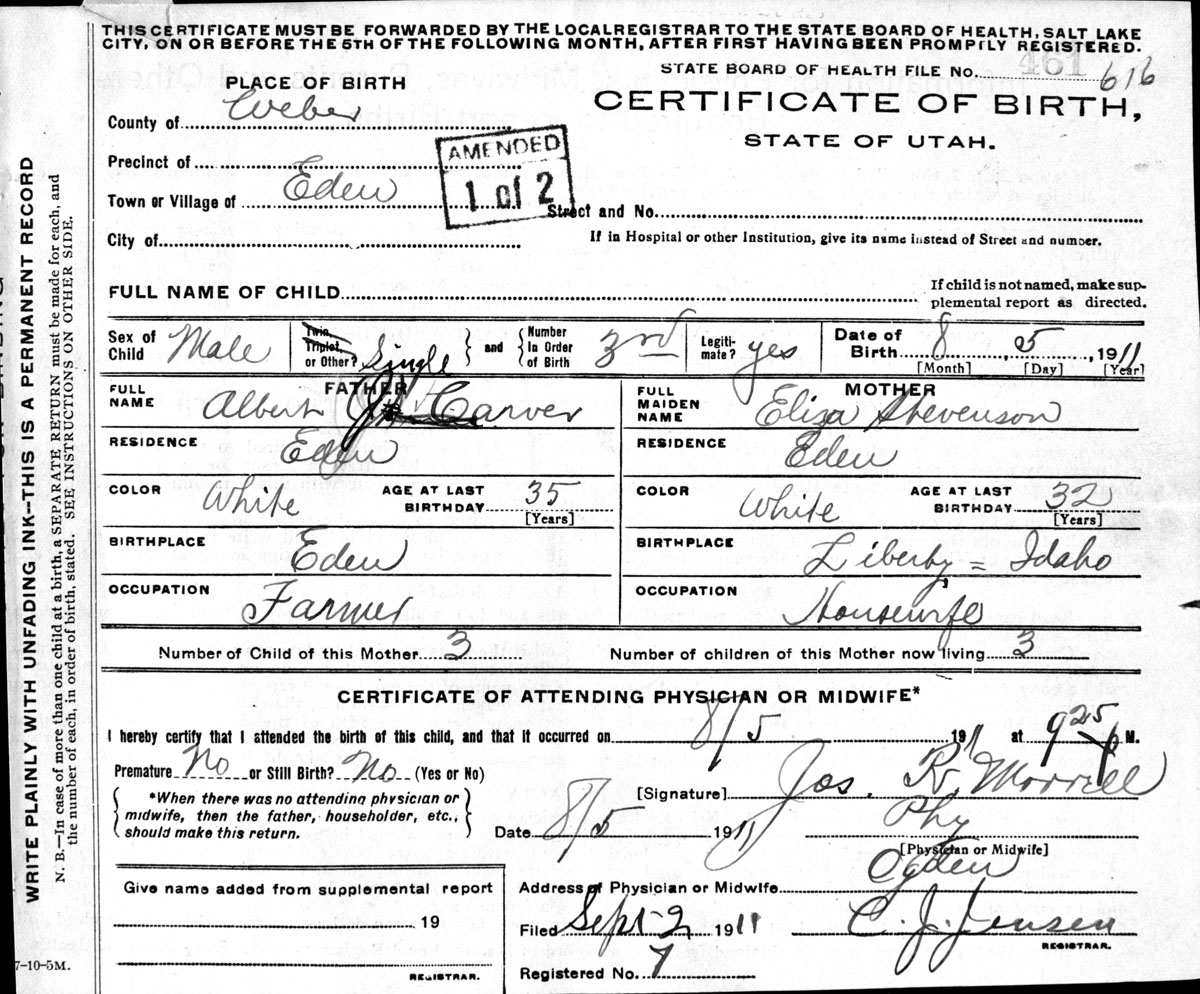 THIS CERTIFICATE MUST BE FORWARDED BY THE LOCAL REGISTRAR TO THE STATE BOARD OF HEALTH, SALT LAKE
CITY, ON OR BEFORE THE 5TH OF THE FOLLOWING MONTH, AFTER FIRST HAVING BEEN PROMPTLY REGISTERED.
STATE BOARD OF HEALTH FILE No. 461 616
PLACE OF BIRTH
CERTIFICATE OF BIRTH,
STATE OF UTAH.
County of Weber
AMENDED
1 of 2
Precinct of
Town or Village of Eden
Street and No.
City of
If in Hospital or other Institution, give its name instead of Street and number.
FULL NAME OF CHILD
If child is not named, make sup-
plemental report as directed.
Sex of Child Male
Twin, Triplet, or Other? Single and Number In Order of Birth 3rd
Legiti-mate? yes
Date of Birth 8, 5, 1911
[Month] [Day] [Year]
FATHER
MOTHER
FULL NAME Albert Carver
FULL MAIDEN NAME Eliza Stevenson
RESIDENCE Eden
RESIDENCE Eden
COLOR White AGE AT LAST BIRTHDAY 35 [Years]
COLOR White AGE AT LAST BIRTHDAY 32 [Years]
BIRTHPLACE Eden
BIRTHPLACE Liberty = Idaho
OCCUPATION Farmer
OCCUPATION Housewife
Number of Child of this Mother 3
Number of children of this Mother now living 3
CERTIFICATE OF ATTENDING PHYSICIAN OR MIDWIFE*
I hereby certify that I attended the birth of this child, and that it occurred on 8/5 1911 at 9 25 p M.
Premature No or Still Birth? No (Yes or No)
*When there was no attending physician or
midwife, then the father, householder, etc.,
should make this return.
[Signature] Jos. R. Morrell
Date 8/5 1911 Phy
[Physician or Midwife]
Address of Physician or Midwife Ogden
Give name added from supplemental report
19
REGISTRAR.
Filed Sept 2 1911 C. J. Jensen
REGISTRAR.
Registered No. 7
7-10-5M.
WRITE PLAINLY WITH UNFADING INK--THIS IS A PERMANENT RECORD
N. B.—In case of more than one child at a birth, a SEPARATE RETURN must be made for each, and
the number of each, in order of birth, stated. SEE INSTRUCTIONS ON OTHER SIDE.